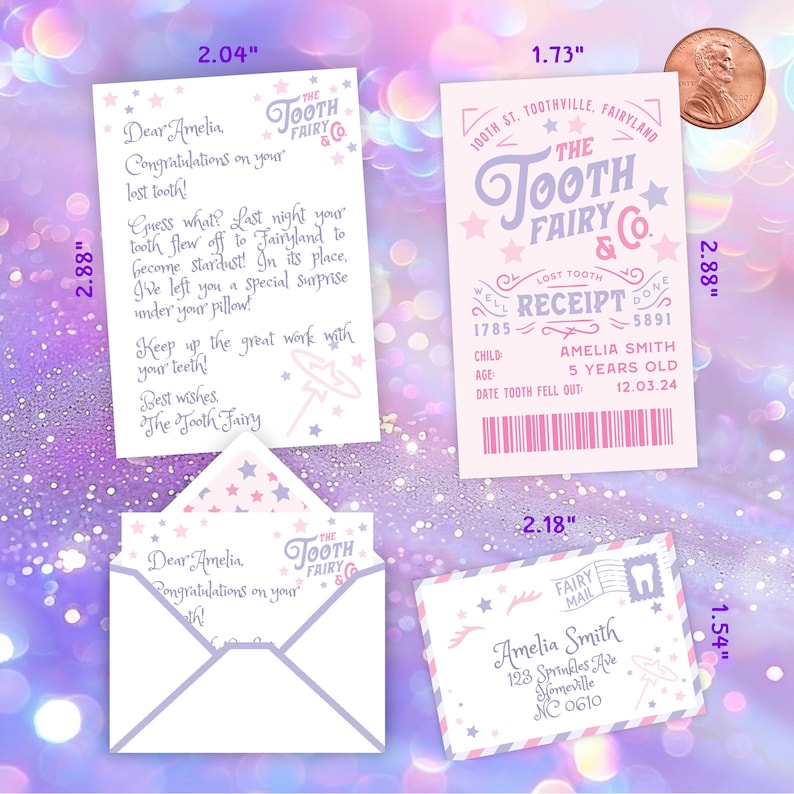 2.04"
2.88"
Dear Amelia,
THE
TOOTH
FAIRY
& CO.
Congratulations on your
lost tooth!
Guess what? Last night your
tooth flew off to Fairyland to
become stardust! In its place,
I've left you a special surprise
under your pillow!
Keep up the great work with
your teeth!
Best wishes,
The Tooth Fairy
1.73"
2.88"
100TH ST, TOOTHVILLE, FAIRYLAND
THE
TOOTH
FAIRY
& CO.
LOST TOOTH
WELL RECEIPT DONE
1785 5891
CHILD: AMELIA SMITH
AGE: 5 YEARS OLD
DATE TOOTH FELL OUT: 12.03.24
Dear Amelia,
THE
TOOTH
FAIRY
& CO
Congratulations on your
th!
2.18"
1.54"
FAIRY
MAIL
Amelia Smith
123 Sprinkles Ave
Homeville
NC 0610